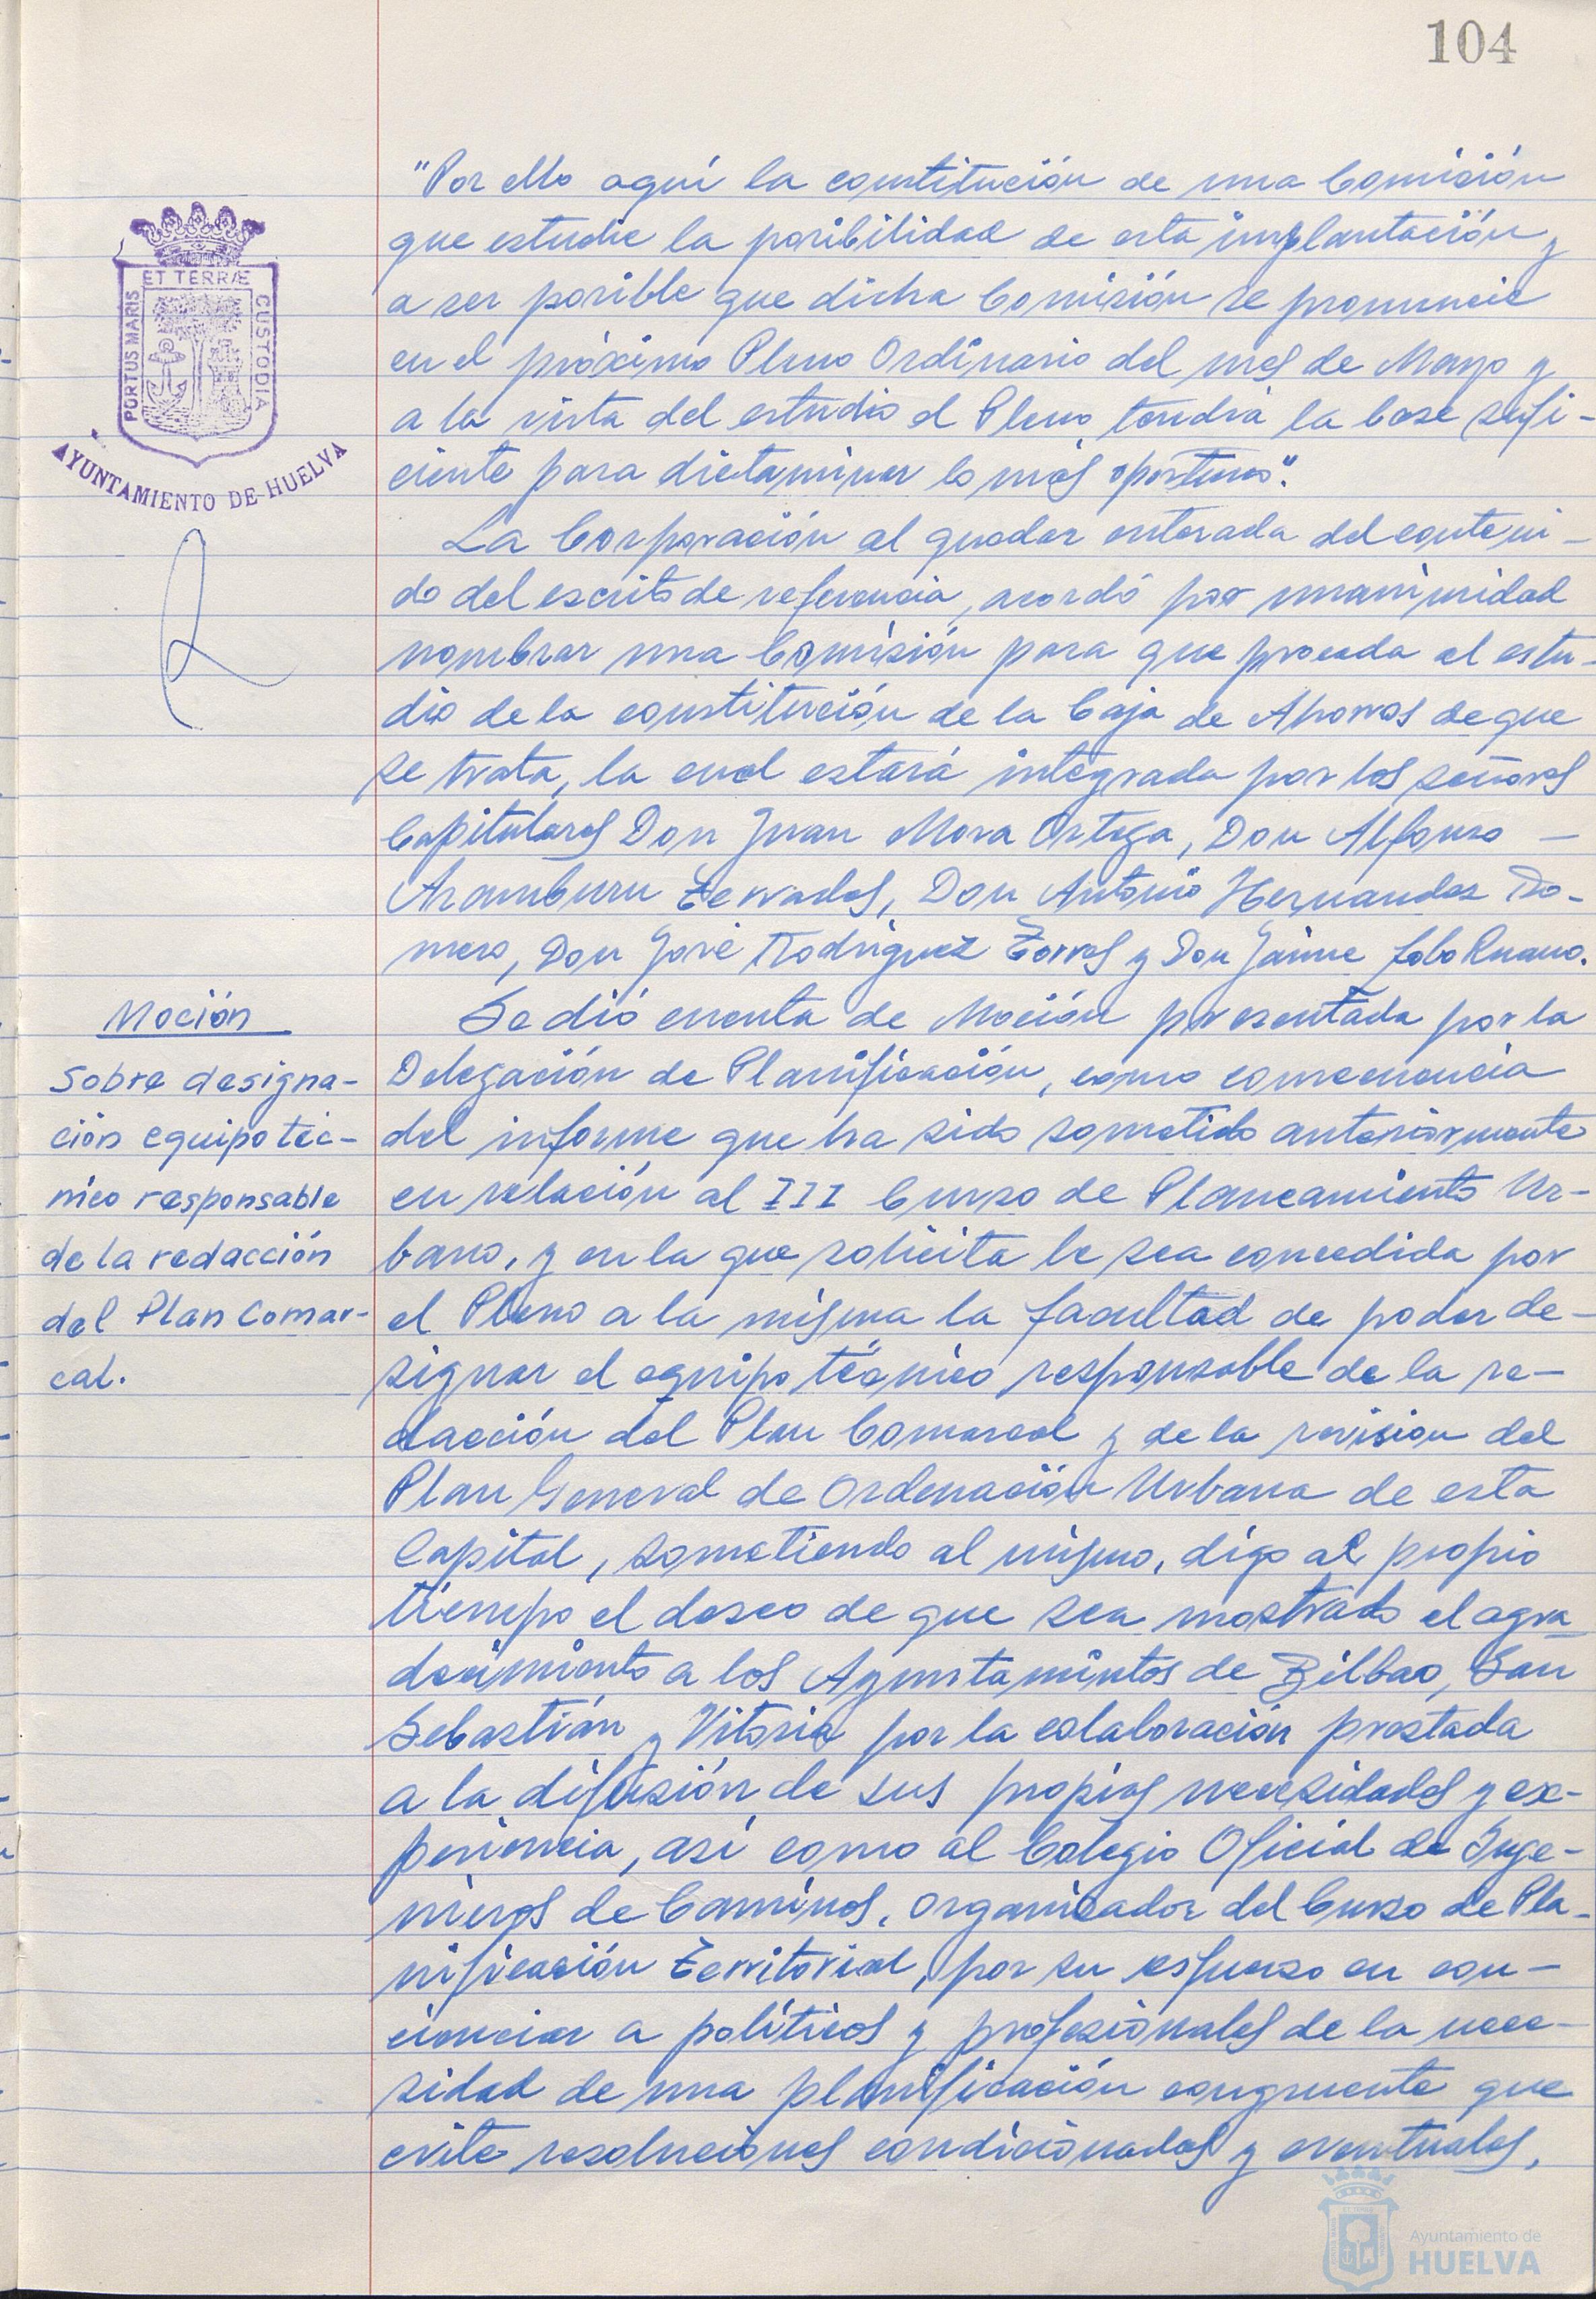 104
"Por ello aquí la constitución de una Comisión
que estudie la posibilidad de esta implantación y
a ser posible que dicha Comisión se pronuncie
en el próximo Pleno Ordinario del mes de Mayo y
a la vista del estudio el Pleno tendrá la base sufi-
ciente para dictaminar lo más oportuno".
ET TERRÆ
PORTUS MARIS
CUSTODIA
AYUNTAMIENTO DE HUELVA
La Corporación al quedar enterada del conteni-
do del escrito de referencia, acordó por unanimidad
nombrar una Comisión para que proceda al estu-
dio de la constitución de la Caja de Ahorros de que
se trata, la cual estará integrada por los señores
Capitulares Don Juan Mora Ortega, Don Alfonso —
Aramburu Terrades, Don Antonio Hernandez Ro-
mero, Don José Rodríguez Torres y Don Jaime Lobo Ruano.
Moción
Sobre designa-
ción equipo téc-
nico responsable
de la redacción
del Plan Comar-
cal.
Se dió cuenta de Moción presentada por la
Delegación de Planificación, como consecuencia
del informe que ha sido sometido anteriormente
en relación al III Curso de Planeamiento Ur-
bano, y en la que solicita le sea concedida por
el Pleno a la misma la facultad de poder de-
signar el equipo técnico responsable de la re-
dacción del Plan Comarcal y de la revision del
Plan General de Ordenación Urbana de esta
Capital, sometiendo al mismo, digo al propio
tiempo el deseo de que sea mostrado el agra-
decimiento a los Ayuntamintos de Bilbao, San
Sebastián y Vitoria por la colaboración prestada
a la difusión de sus propias necesidades y ex-
periencia, así como al Colegio Oficial de Inge-
nieros de Caminos, organizador del Curso de Pla-
nificación Territorial, por su esfuerzo en con-
cienciar a políticos y profesionales de la nece-
sidad de una planificación congruente que
evite resoluciones condicionadas y eventuales,
Ayuntamiento de
HUELVA